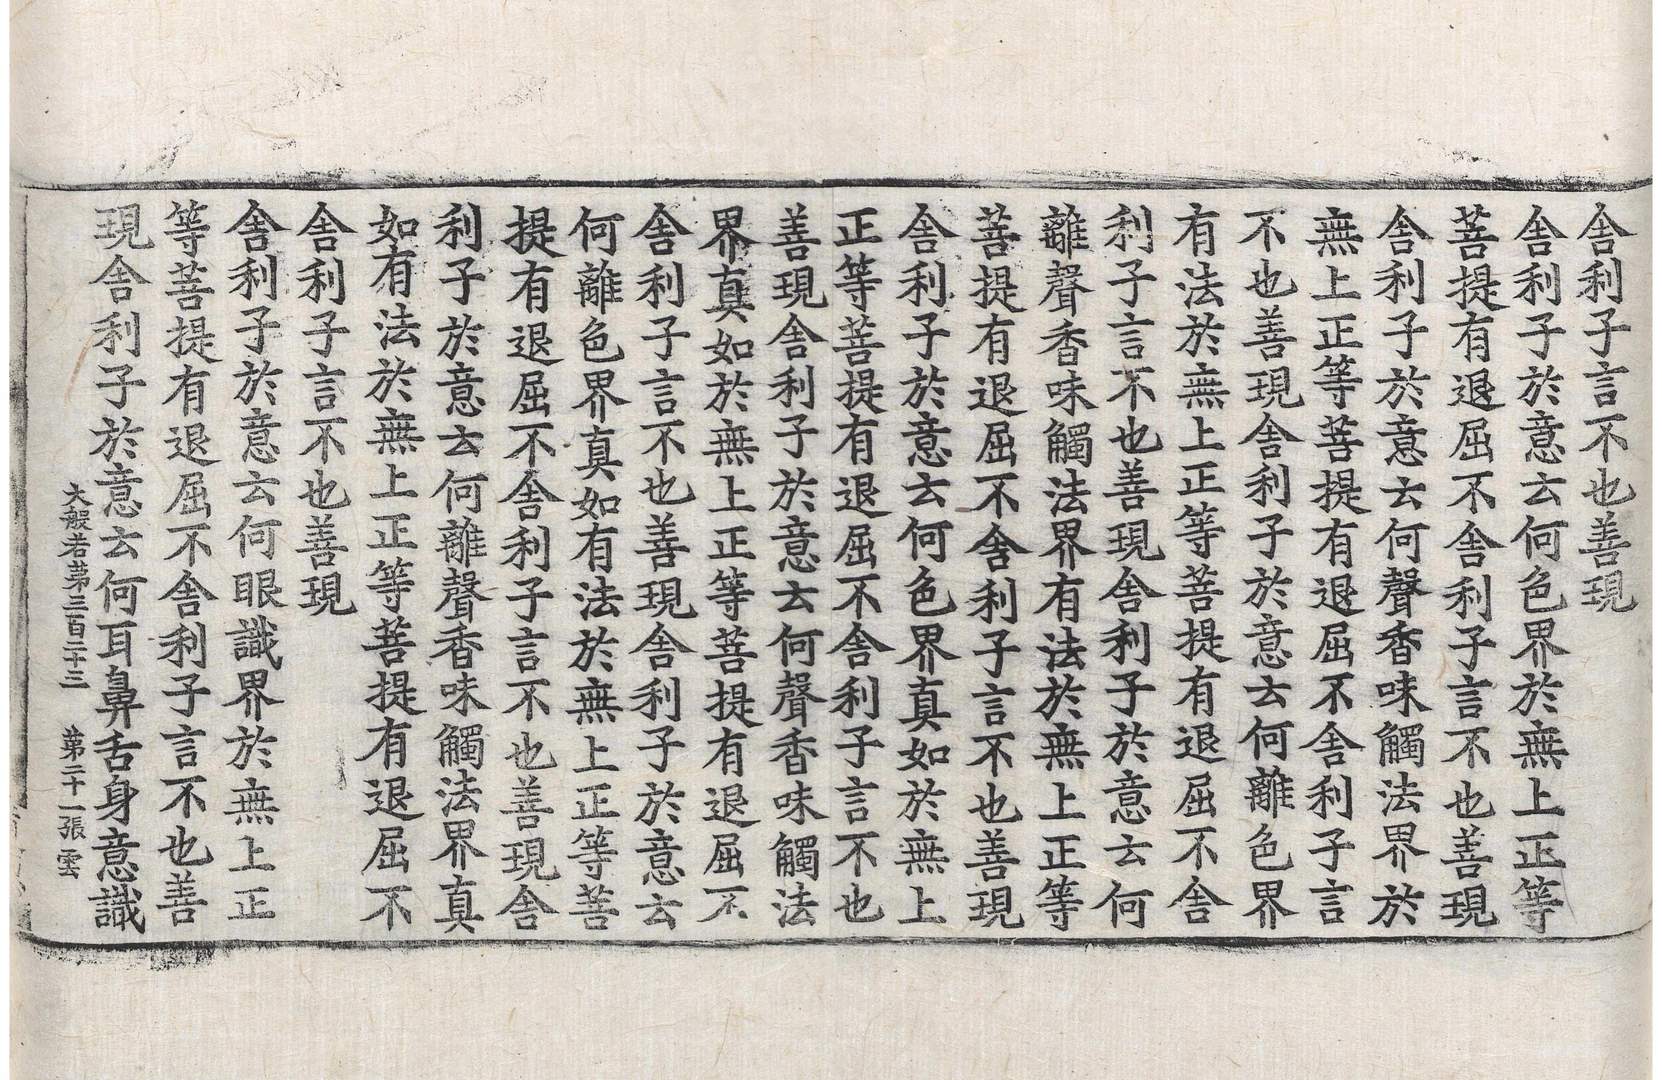 舍利子言不也善現
舍利子於意云何色界於無上正等
菩提有退屈不舍利子言不也善現
舍利子於意云何聲香味觸法界於
無上正等菩提有退屈不舍利子言
不也善現舍利子於意云何離色界
有法於無上正等菩提有退屈不舍
利子言不也善現舍利子於意云何
離聲香味觸法界有法於無上正等
菩提有退屈不舍利子言不也善現
舍利子於意云何色界真如於無上
正等菩提有退屈不舍利子言不也
善現舍利子於意云何聲香味觸法
界真如於無上正等菩提有退屈不
舍利子言不也善現舍利子於意云
何離色界真如有法於無上正等菩
提有退屈不舍利子言不也善現舍
利子於意云何離聲香味觸法界真
如有法於無上正等菩提有退屈不
舍利子言不也善現
舍利子於意云何眼識界於無上正
等菩提有退屈不舍利子言不也善
現舍利子於意云何耳鼻舌身意識
大般若第三百二十三 第二十一張 雲